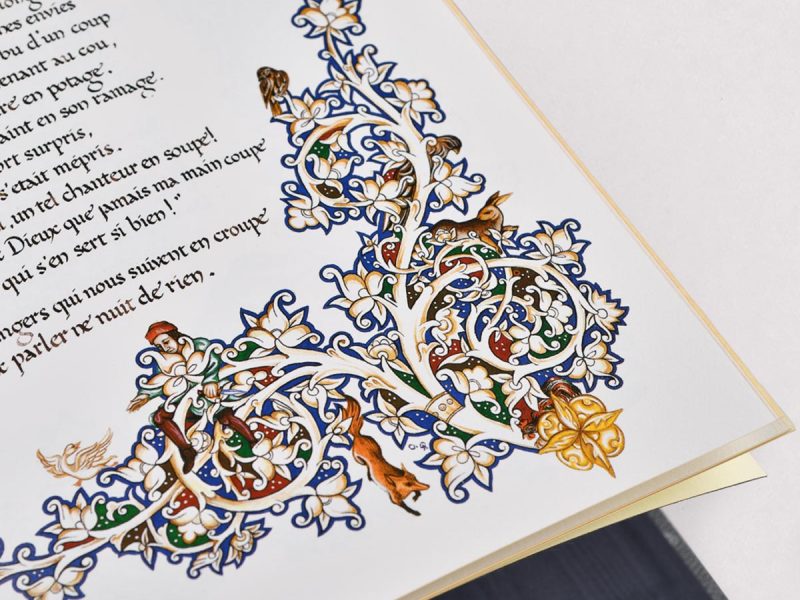 nes envies
bu d'un coup
enant au cou,
re en potage.
aint en son ramage.
ort surpris,
s'était mépris.
, un tel chanteur en soupe!
Dieux que jamais ma main coupe
qui s'en sert si bien!"
ngers qui nous suivent en croupe
e parler ne nuit de rien.